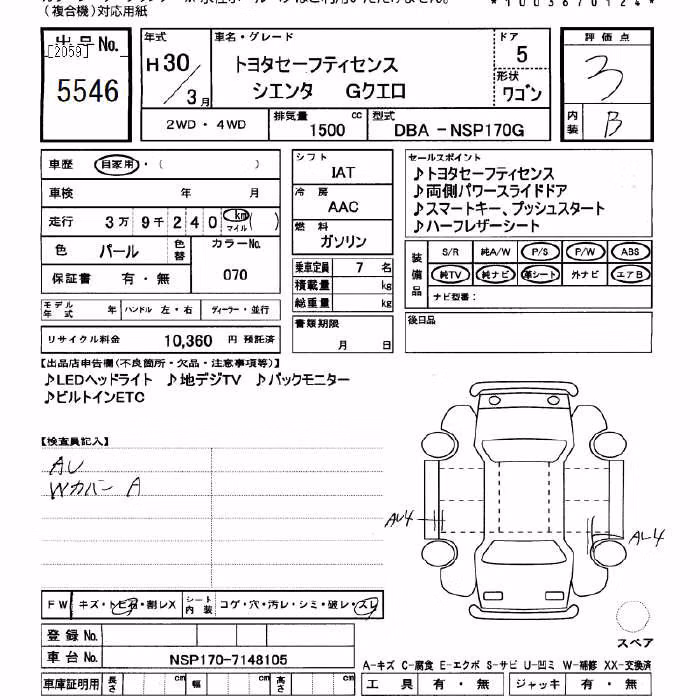 (複合機)対応用紙
*1003670124*
出品No.
[2059]
5546
年式
H30/3月
車名・グレード
トヨタセーフティセンス
シエンタ Gクエロ
ドア
5
形状
ワゴン
評価点
3
内装
B
2WD・4WD
排気量 1500 cc
型式 DBA-NSP170G
車歴 自家用・( )
車検 年 月
走行 3万9千240 km マイル ( )
色 パール 色替
カラーNo. 070
保証書 有・無
モデル年式 年 ハンドル 左・右 ディーラー・並行
リサイクル料金 10,360 円 預託済
シフト
IAT
冷房
AAC
燃料
ガソリン
乗車定員 7 名
積載量 kg
総重量 kg
書類期限
月 日
セールスポイント
♪トヨタセーフティセンス
♪両側パワースライドドア
♪スマートキー、プッシュスタート
♪ハーフレザーシート
装備品
S/R 純A/W P/S P/W ABS
純TV 純ナビ 革シート 外ナビ エアB
ナビ型番:
後日品
【出品店申告欄(不良箇所・欠品・注意事項等)】
♪LEDヘッドライト ♪地デジTV ♪バックモニター
♪ビルトインETC
【検査員記入】
AU
Wカバー A
AU4
AU4
FW キズ・トビ石・割レX シート内装 コゲ・穴・汚レ・シミ・破レ・スレ
スペア
登録No.
車台No. NSP170-7148105
A-キズ C-腐食 E-エクボ S-サビ U-凹ミ W-補修 XX-交換済
車庫証明用 長さ cm 幅 cm 高さ cm
工具 有・無 ジャッキ 有・無